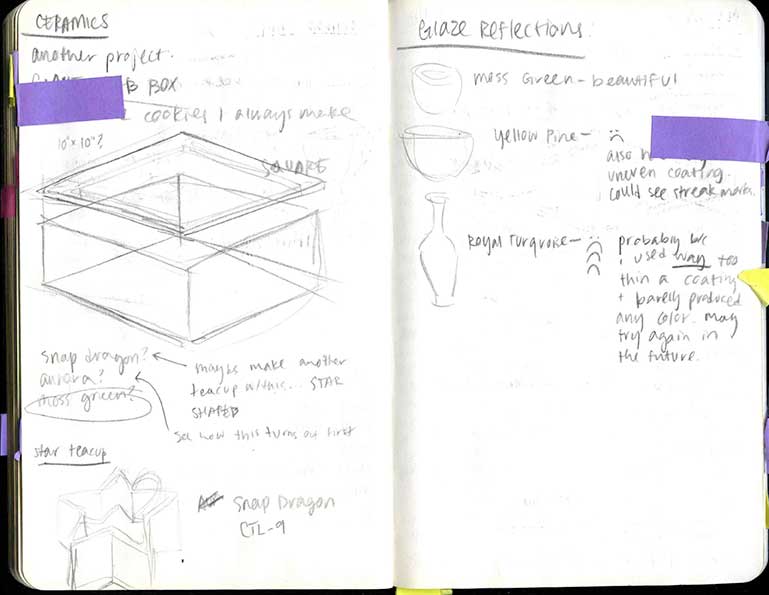 CERAMICS
another project.
B BOX
cookies I always make
10"x10"?
SQUARE
snap dragon?
aurora?
moss green?
maybe make another
teacup w/this... STAR
SHAPED
see how this turns out first
star teacup
Snap Dragon
CTL-9
Glaze Reflections.
Moss Green - beautiful
Yellow Pine - :(
also
uneven coating.
could see streak marks.
Royal Turquoise - :(((
probably b/c
i used way too
thin a coating
+ barely produced
any color. may
try again in
the future.